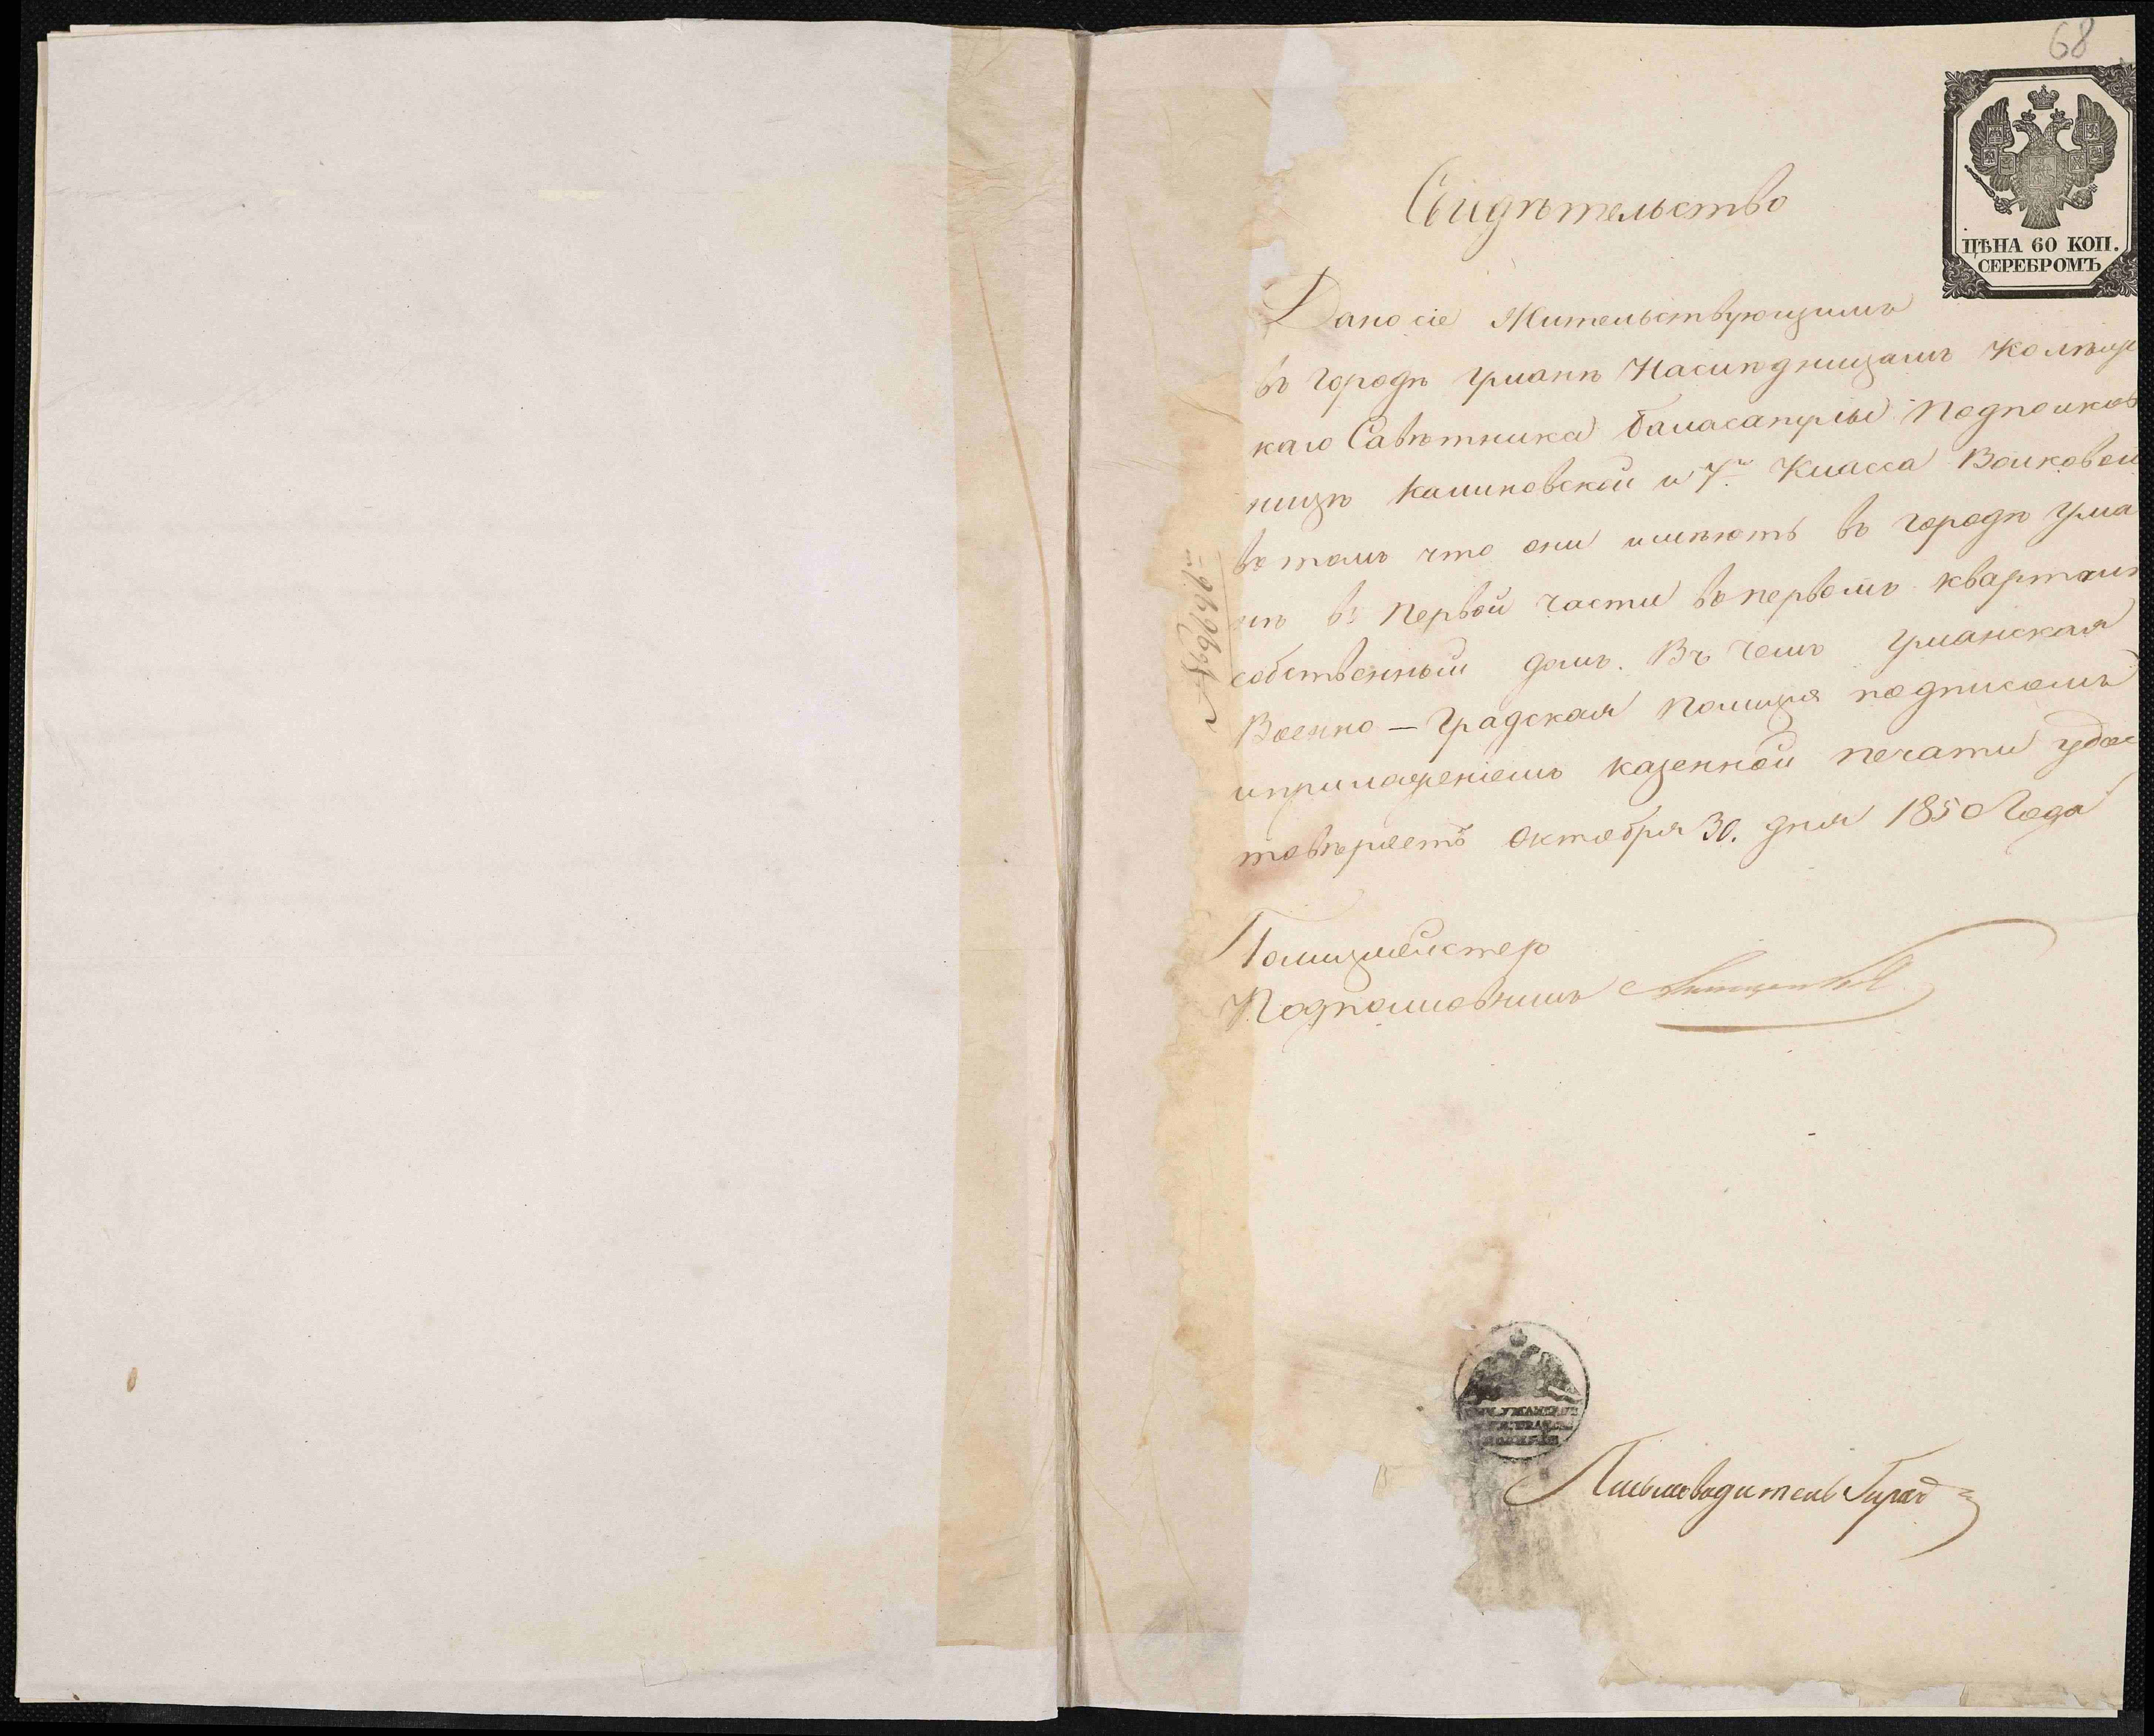 68
ЦѢНА 60 КОП.
СЕРЕБРОМЪ
Свидѣтельство
Дано сіе Жительствующимъ
въ городѣ Уманѣ Наслѣдницамъ Колѣжс
каго Савѣтника Баласаплы Подполков
ницѣ Калиновской и 7го Класса Волковой
въ томъ что они имѣютъ въ городѣ Ума
нѣ въ Первой части въ первомъ квартал
собственный домъ. Въ чемъ Уманская
Военно-Градская Полиция подписомъ
и приложеніемъ казенной печати удос
товѣряетъ Октября 30. дня 1850 Года
Полицмейстер
Подполковникъ
Письмоводитель